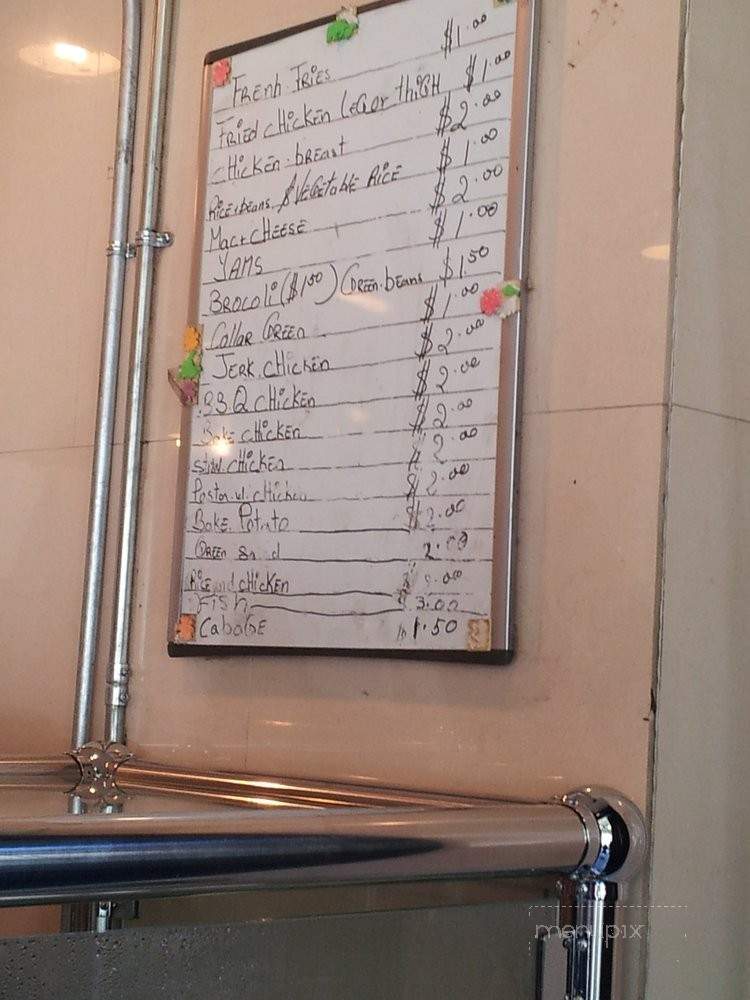 FRENH FRIES $1.00
FRIED CHICKEN LEG or THIGH $1.00
CHICKEN breast $2.00
Rice & beans $ VEGETABLE RICE $1.00
Mac + CHEESE $2.00
YAMS $1.00
BROCOLI ($1.50) GREEN beans $1.50
Collar GREEN $1.00
JERK CHICKEN $2.00
B B Q CHICKEN $2.00
Bake CHICKEN $2.00
stew CHICKEN $2.00
$2.00
Bake Potato $2.00
GREEN 2.00
Rice and CHICKEN
Fish $3.00
CabaGE $1.50
menupix